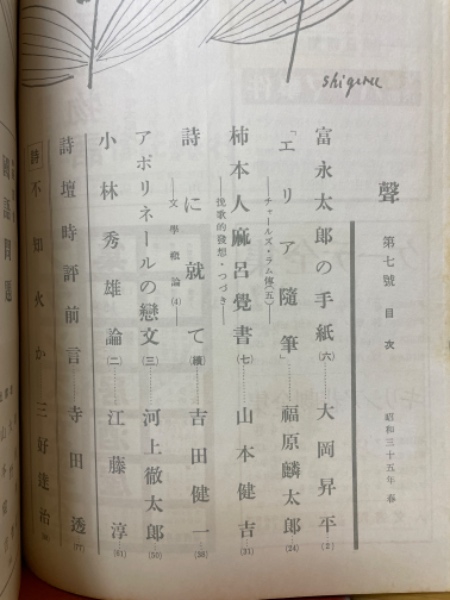 shigeru
聲 第七號 目次 昭和三十五年 春
富永太郎の手紙(六)……大岡昇平(2)
「エリア隨筆」……福原麟太郎(24)
——チャールズ・ラム傳(五)——
柿本人麻呂覺書(七)……山本健吉(31)
——挽歌的發想・つづき——
詩に就て(續)……吉田健一(38)
——文學概論(4)——
アポリネールの戀文(三)……河上徹太郎(50)
小林秀雄論(二)……江藤淳(61)
詩壇時評前言……寺田透(77)
詩 不知火か……三好達治
國語問題